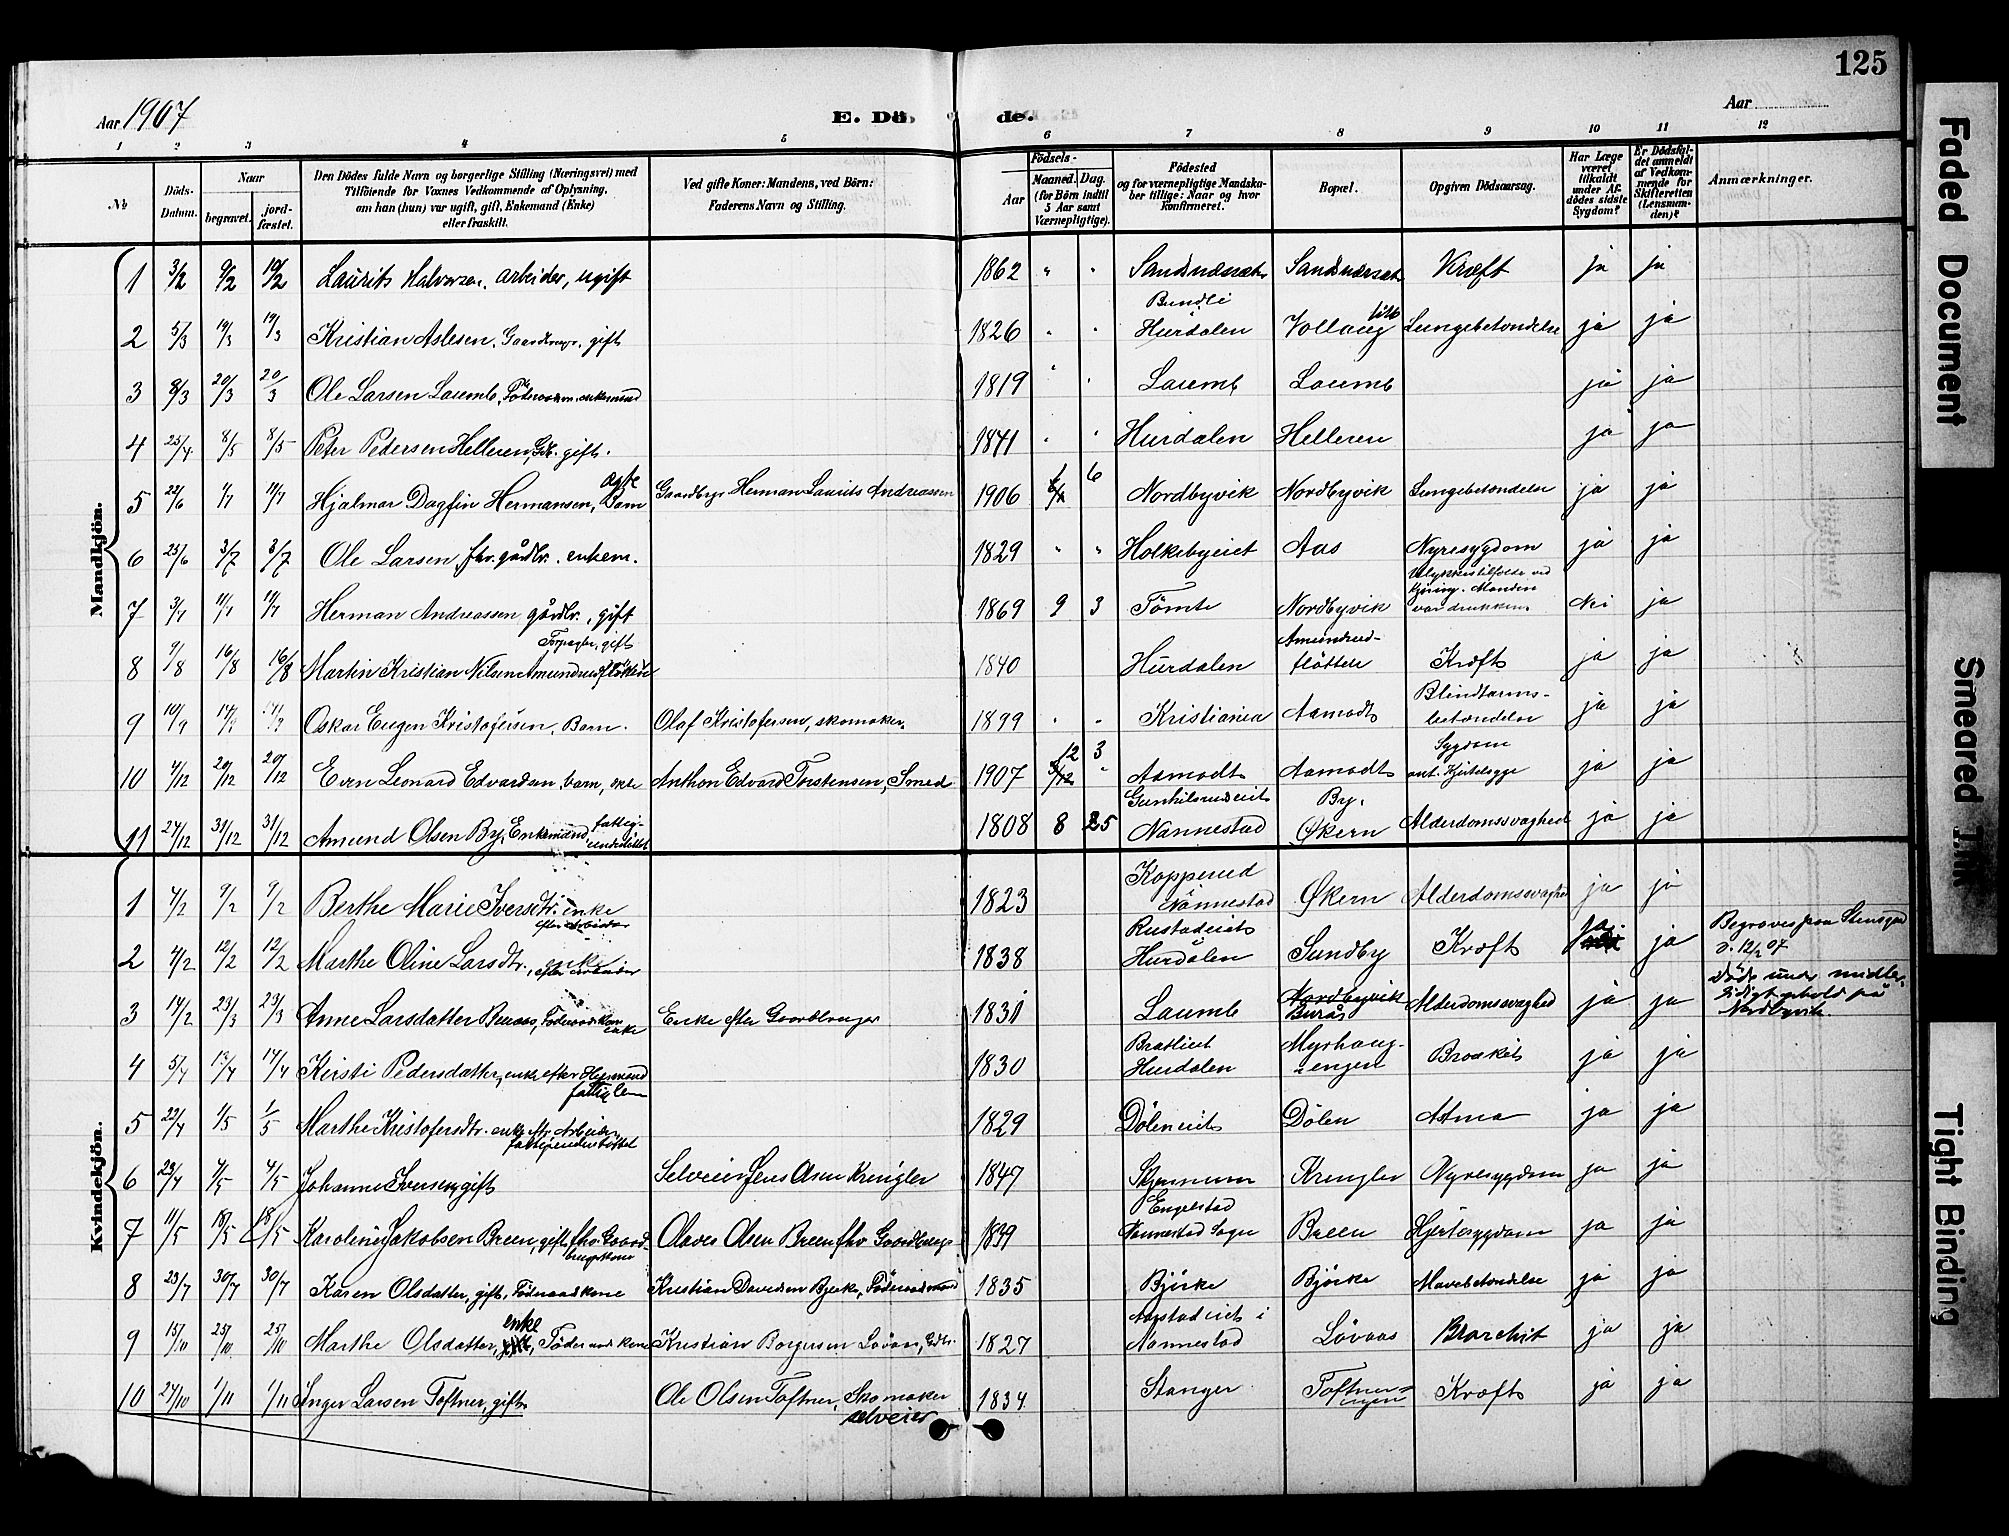 125
Aar 1907
E. Dö de.
Aar
1 2 3 4 5 6 7 8 9 10 11 12
№
Döds-Datum.
Naar
begravet.
jord-fæstet.
Den Dödes fulde Navn og borgerlige Stilling (Næringsvei) med Tilföiende for Voxnes Vedkommende af Oplysning, om han (hun) var ugift, gift, Enkemand (Enke) eller fraskilt.
Ved gifte Koner: Mandens, ved Börn: Faderens Navn og Stilling.
Födsels-
Aar
Maaned. Dag.
(for Börn indtil 5 Aar samt Værnepligtige).
Födested
og for værnepligtige Mandskaber tillige: Naar og hvor konfirmeret.
Bopæl.
Opgiven Dödsaarsag.
Har Læge været tilkaldt under Afdödes sidste Sygdom?
Er Dödsfaldet anmeldt af Vedkommende for Skifteretten (Lensmanden)?
Anmærkninger.
Mandkjön.
1 3/2 9/2 19/2 Laurits Halvorsen, arbeider, ugift 1862 " " Sandsnæsset Sandsnæsset Kræft ja ja
2 5/3 19/3 19/3 Kristian Aslesen, gift 1826 " " Bundli Hurdalen Vollaug Lungebetændelse ja ja
3 8/3 20/3 20/3 Ole Larsen Laumb, enkemand 1819 " " Laumb Laumb ja ja
4 25/4 8/5 8/5 Peter Pedersen Helleren, Gbr. gift. 1841 " " Hurdalen Helleren ja ja
5 24/6 1/7 11/7 Hjalmar Dagfin Hermansen, ægte Barn Gaardbrgr Herman Laurits Andreassen 1906 6 Nordbyvik Nordbyvik Lungebetændelse ja ja
6 25/6 3/7 3/7 Ole Larsen, fhv. gårdbr. enkem. 1829 " " Holkebyeiet Aas Nyresygdom ja ja
7 3/7 11/7 11/7 Herman Andreassen gårdbr., gift 1869 9 3 Tömte Nordbyvik Ulykkestilfælde ved kjöring. Manden var drukken. Nei ja
8 9/8 16/8 16/8 Martin Kristian Nilsen Amundrudfløtten gift 1840 Hurdalen Amundrud-fløtten Kræft ja ja
9 10/9 14/9 Oskar Eugen Kristofersen, Barn. Olaf Kristofersen, skomaker. 1899 " " Kristiania Aamodt Blindtarms-betændelse ja ja
10 4/12 20/12 20/12 Even Leonard Edvardsen, barn, ekte Anthon Edvard Torstensen, Smed 1907 12 3 Aamodt Aamodt Sygdom ant. Kjertelsyge ja ja
11 24/12 31/12 31/12 Amund Olsen By, Enkemand, fattig-understöttet 1808 8 25 Gunhilsrudeiet Nannestad By. Økern Alderdomssvaghed ja ja
Kvindekjön.
1 4/2 9/2 9/2 Berthe Marie Iversdtr. enke efter Arbeider 1823 Kopperud Nannestad Økern Alderdomssvaghed ja ja
2 4/2 12/2 12/2 Marthe Oline Larsdtr., enke efter arbeider 1838 Rustadeiet Hurdalen Sundby Kræft ja ja Begraves paa Stensgrd d. 12/2 07.
3 14/2 23/3 23/3 Anne Larsdatter Buraas, Föderaadskone enke Enke efter Gaardbruger 1831 Laumb Nordbyvik Burås Alderdomssvaghed ja ja Döde under midler-tidigt ophold på Nordbyvik.
4 5/4 17/4 17/4 Kirsti Pedersdatter, enke efter Husmand fattiglem 1830 Bratliet Hurdalen Myrhaug-engen Bronkit ja ja
5 22/4 1/5 1/5 Marthe Kristofersdtr. enke eftr Arbeider, fattigunderstöttet 1829 Döleneiet Dölen Astma ja ja
6 23/4 4/5 4/5 Johanne Iversen, gift Selveier Jens Olsen Krengler 1847 Skjennum Krengler Nyresygdom ja ja
7 11/5 18/5 18/5 Karoline Jakobsen Breen, gift, fhv. Gaard-brugskone Olaves Olsen Breen fhv. Gaardbrugr Engelstad Nannestad Sogn Breen Hjertesygdom ja ja
8 23/7 30/7 30/7 Karen Olsdatter, gift, Föderaadskone Kristian Davidsen Bjerke, Föderaadsmand 1835 Björke Björke Mavebetændelse ja ja
9 15/10 25/10 25/10 Marthe Olsdatter, enke, Föderaadskone Kristian Borgersen Løvaas, Gdbr. 1827 i Nannestad Løvaas Bronchit ja ja
10 24/10 1/11 1/11 Inger Larsen Toftner, gift Ole Olsen Toftner, Skomaker selveier 1834 Stanger Toftner-engen Kræft ja ja
Faded Document
Smeared Ink
Tight Binding